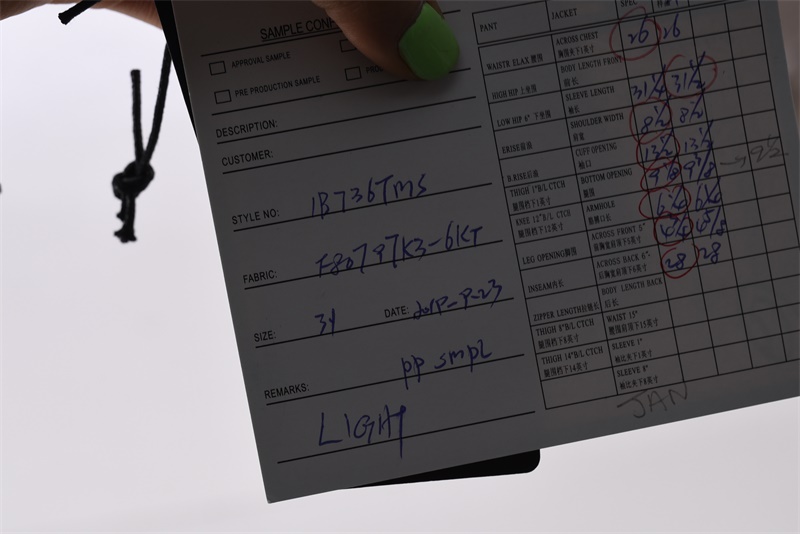 SAMPLE CONF
APPROVAL SAMPLE
PRE PRODUCTION SAMPLE
DESCRIPTION:
CUSTOMER:
STYLE NO: 1B736TMS
FABRIC: F80797K3-6KT
SIZE: 34 DATE:
REMARKS: pp smpl
LIGHT
PANT JACKET SPEC
WAISTR ELAX 腰围 ACROSS CHEST 胸围夹下1英寸 26 26
HIGH HIP 上坐围 BODY LENGTH FRONT 前长 31 1/4 31 1/2
LOW HIP 6" 下坐围 SLEEVE LENGTH 袖长 8 1/2 8 1/2
F.RISE前浪 SHOULDER WIDTH 肩宽 13 1/2 13 1/2
B.RISE后浪 CUFF OPENING 袖口
THIGH 1"B/L CTCH 腿围档下1英寸 BOTTOM OPENING 脚围 6 1/4 6 1/4
KNEE 12"B/L CTCH 膝围档下12英寸 ARMHOLE
LEG OPENING脚围 ACROSS FRONT 5" 28 28
INSEAM内长 ACROSS BACK 6"
ZIPPER LENGTH拉链长 BODY LENGTH BACK 后长
THIGH 8"B/L CTCH 腿围档下8英寸 WAIST 15"
THIGH 14"B/L CTCH 腿围档下14英寸 SLEEVE 1"
SLEEVE 8"
JAN